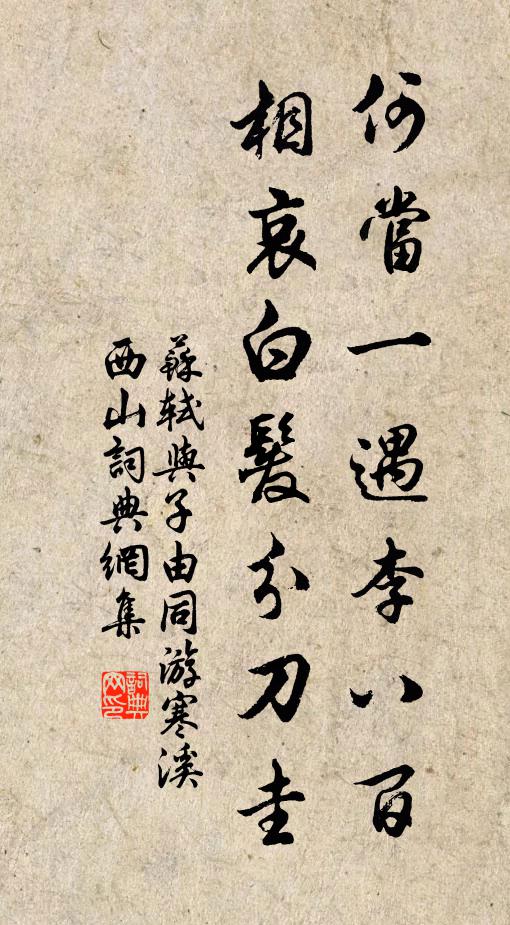 何當一遇李八百
相哀白髮分刀圭
蘇軾與子由同游寒溪
西山詞典網集
詞典網印